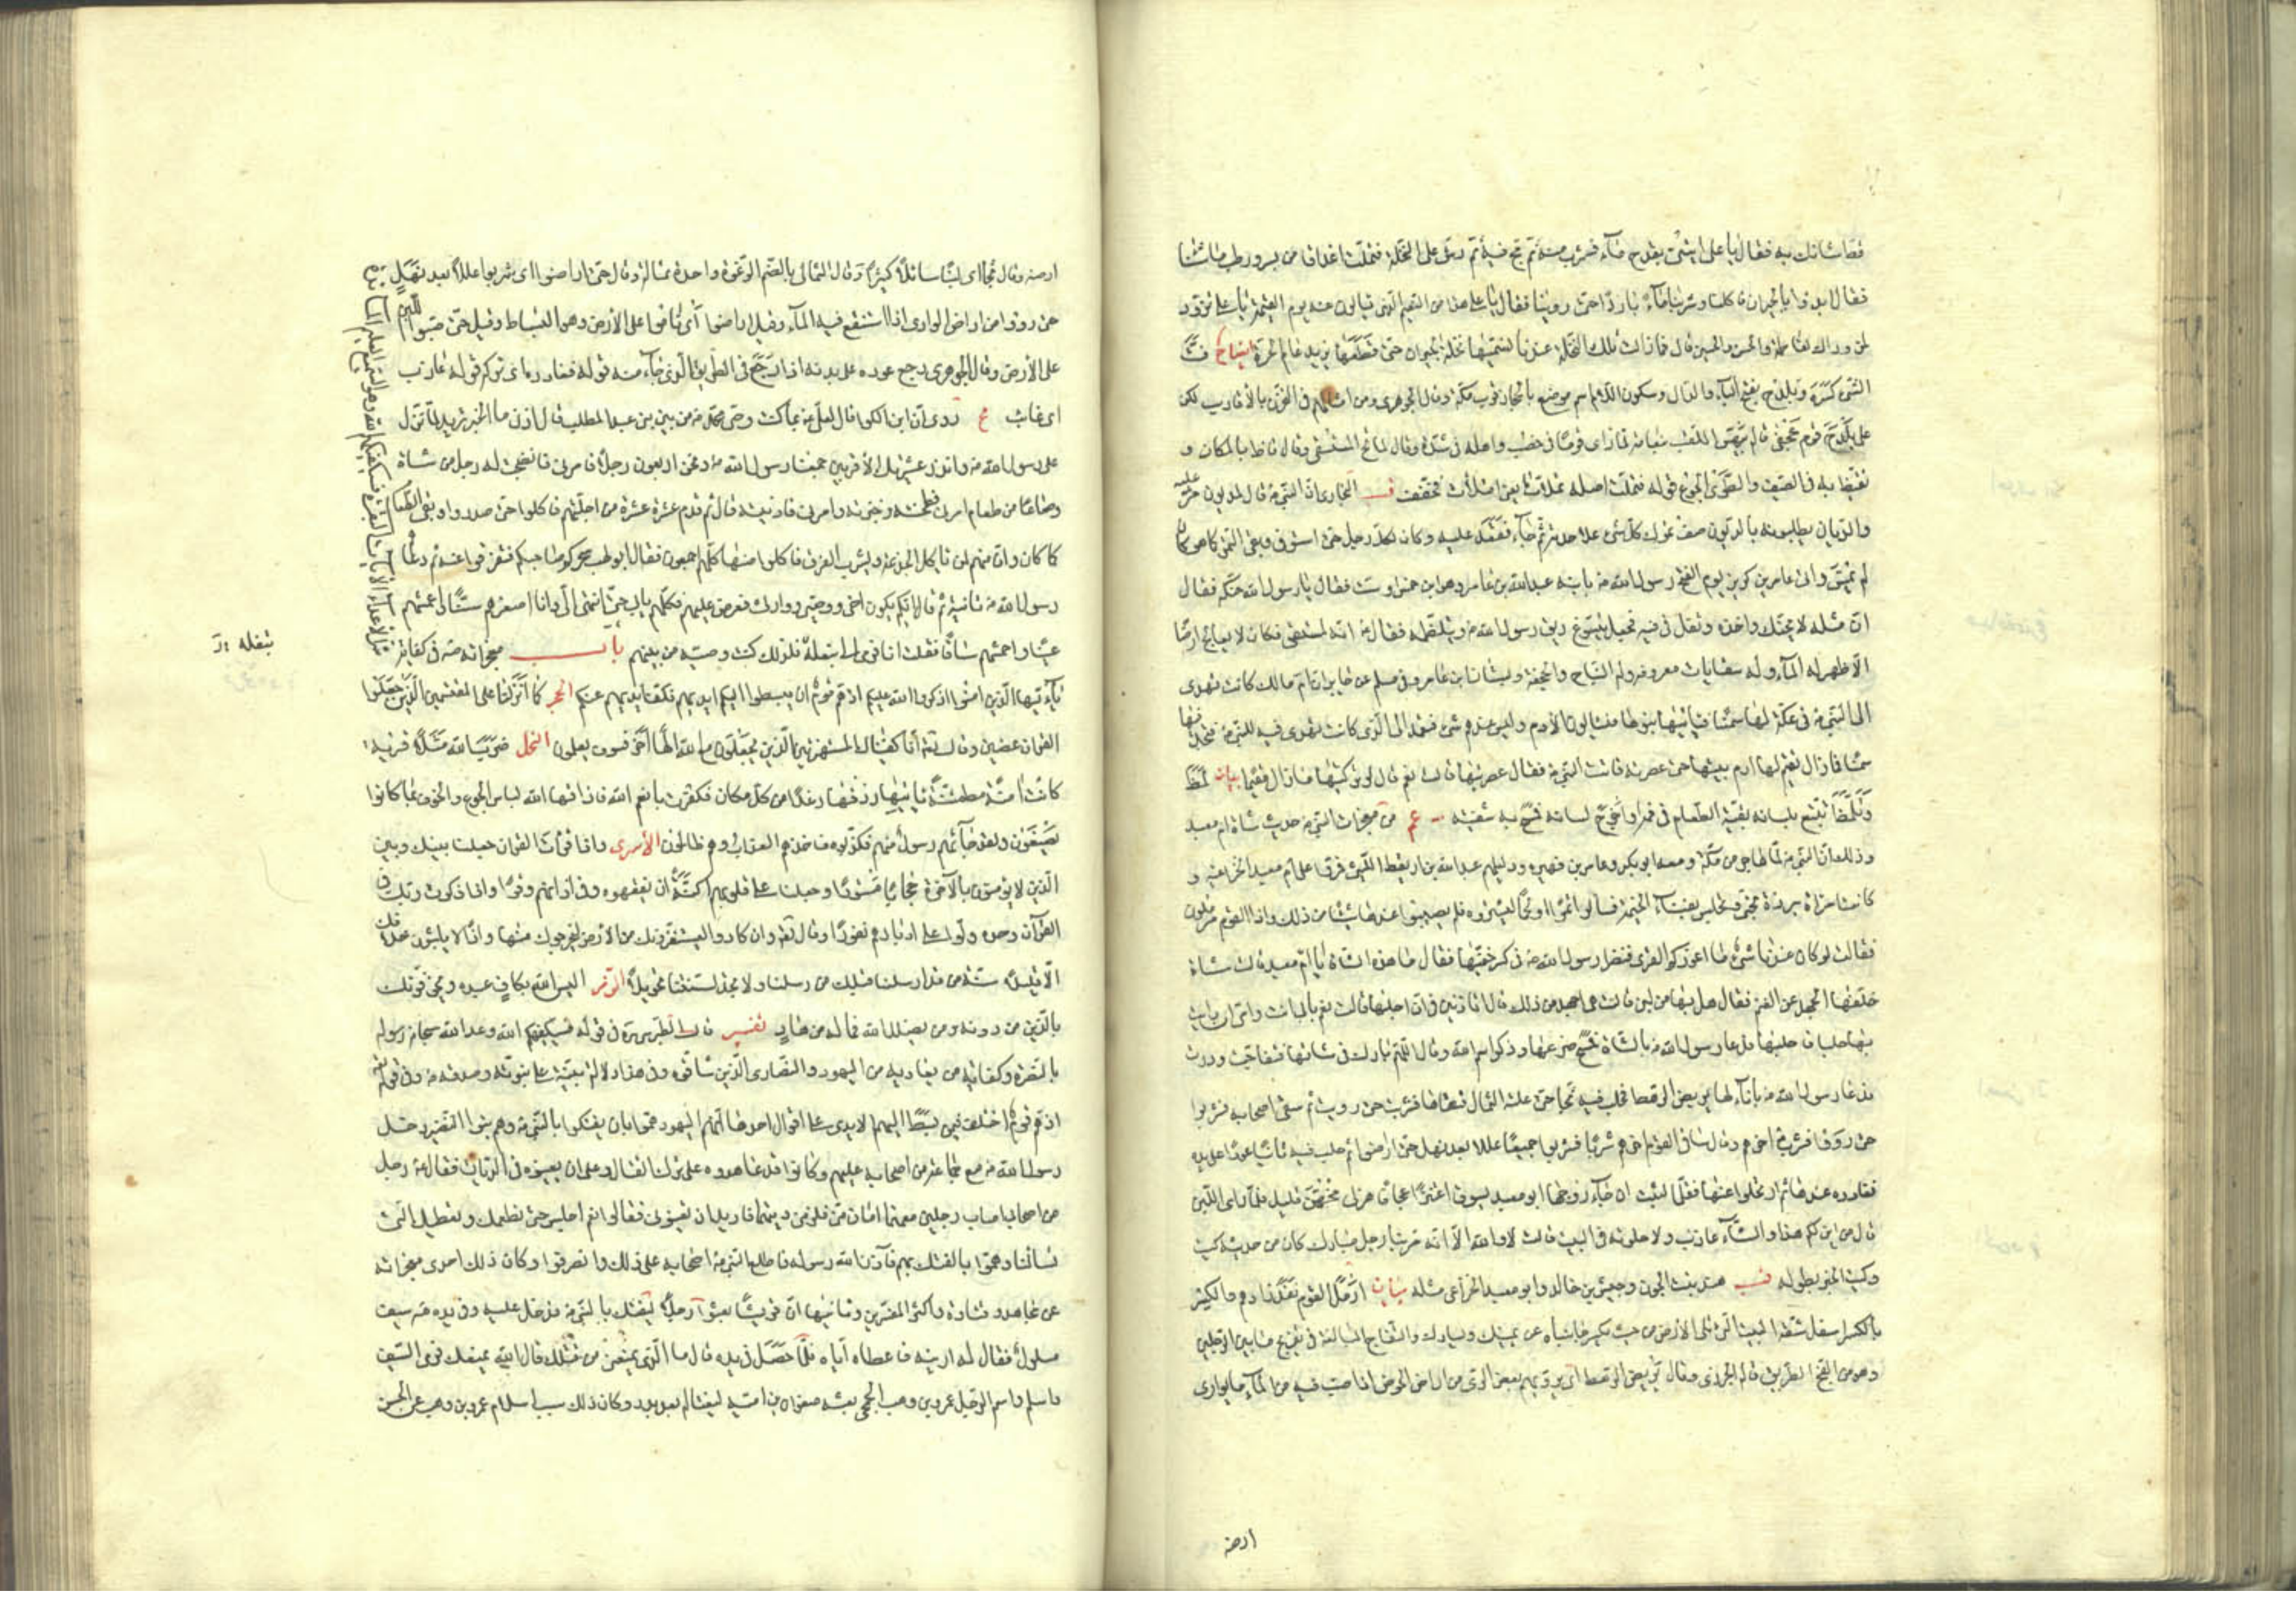 فقال يا علي ائتني بقدح ماء فشرب منه ثم مج فيه ثم رش على النخلة فتملت اعذاقا من بسر ورطب ما شئنا
فقال ابدؤا بالجيران فاكلنا وشربنا ماء باردا حتى روينا فقال يا علي هذا من النعيم الذي تسالون عنه يوم القيمة يا علي تزود
لمن وراك لفاطمة والحسن والحسين قال فما زالت تلك النخلة عندنا نسميها نخلة الجيران حتى قطعها يزيد عام الحرة ايضاح فثا
الشئ كسره وبلدح بفتح الباء والدال وسكون اللام اسم موضع بالحجاز قرب مكة وقال الجوهري ومن امثالهم في التحزن بالاقارب لكن
على بلدح قوم عجفى قاله بيهس الملقب بنعامة لما راى قوما في خصب واهله في شدة وقال لماظ بالمكان و
والطوى الجوع قوله فتملت اصله تملات يعني امتلات فخفف البخاري ان النبي قال لمديون مر عليه
والديان يطلبونه بالديون صنف تمرك كل شئ على حدته ثم جاء فقعد عليه وكان لكل رجل حتى استوفى وبقي التمر كما هو كان
لم يمس واتى عامر بن كريز يوم الفتح رسول الله بابنه عبد الله بن عامر وهو ابن خمس او ست فقال يا رسول الله حنكه فقال
ان مثله لا يحنك واخذه وتفل في فيه فجعل يتسوغ ريق رسول الله ويتلمظه فقال انه لمسقى فكان لا يعالج ارضا
الا ظهر له الماء وله سقايات معروفة وله النباج والجحفة وبستان ابن عامر وفي مسلم عن جابر ان ام مالك كانت تهدي
الى النبي في عكة لها سمنا فياتيها بنوها فيسالون الادم وليس عندهم شئ فتعمد الى الذي كانت تهدي فيه للنبي فتجد فيها
سمنا فما زال يقيم لها ادم بيتها حتى عصرته فاتت النبي فقال عصرتيها قالت نعم قال لو تركتيها ما زال مقيما بيان لمظ
وتلمظ تتبع بلسانه بقية الطعام في فمه او اخرج لسانه فمسح به شفتيه عم من معجزات النبي حديث شاة ام معبد
وذلك ان النبي لما هاجر من مكة ومعه ابو بكر وعامر بن فهيرة ودليلهم عبد الله بن اريقط الليثي فمروا على ام معبد الخزاعية و
كانت امراة برزة تحتبي وتجلس بفناء الخيمة فسالوا تمرا او لحما ليشتروه فلم يصيبوا عندها شيئا من ذلك واذا القوم مرملون
فقالت لو كان عندنا شئ ما اعوزكم القرى فنظر رسول الله في كسر خيمتها فقال ما هذه الشاة يا ام معبد قالت شاة
خلفها الجهد عن الغنم فقال هل بها من لبن قالت هي اجهد من ذلك قال اتاذنين في ان احلبها قالت نعم بابي انت وامي ان رايت
بها حلبا فاحلبها فدعا رسول الله بالشاة فمسح ضرعها وذكر اسم الله وقال اللهم بارك في شاتها فتفاجت ودرت
فدعا رسول الله باناء لها يريض الرهط فحلب فيه ثجا حتى علته الثمال فسقاها فشربت حتى رويت ثم سقى اصحابه فشربوا
حتى رووا فشرب اخرهم وقال ساقي القوم اخرهم شربا فشربوا جميعا عللا بعد نهل حتى اراضوا ثم حلب فيه ثانيا عودا على بدء
فغادره عندها ثم ارتحلوا عنها فقل ما لبثت ان جاء زوجها ابو معبد يسوق اعنزا عجافا هزلى مخهن قليل فلما راى اللبن
قال من اين لكم هذا والشاء عازب ولا حلوبة في البيت قالت لا والله الا انه مر بنا رجل مبارك كان من حديثه كيت
وكيت الخبر بطوله هند بنت الجون وحبيش بن خالد وابو معبد الخزاعي مثله بيان ارمل القوم نفد زادهم والكسر
بالكسر اسفل شقة البيت التي تلي الارض من حيث يكسر جانباه عن يمينك ويسارك والتفاج المبالغة في تفريج ما بين الرجلين
وهو من الفج الطريق قاله الجزري وقال يريض الرهط اي يرويهم بعض الري من اراض الحوض اذا صب فيه من الماء ما يواري
ارضه
ارضه وقال ثجا اي لبنا سائلا كثيرا وقال الثمالى بالضم الرغوة واحدة ثمالة وقال حتى اراضوا اي شربوا عللا بعد نهل
حتى رووا من اراض الوادي اذا استنقع فيه الماء وقيل اراضوا اي ناموا على الارض وهو البساط وقيل حتى صبوا اللبن
على الارض وقال الجوهري رجع عوده على بدئه اذا رجع في الطريق الذي جاء منه قوله فغادره اي تركه قوله عازب
اي غائب روى ان ابن الكوا قال لعلي بما كنت وصي محمد من بين بني عبد المطلب قال ادن ما الخبر تريد لما نزل
على رسول الله وانذر عشيرتك الاقربين جمعنا رسول الله ونحن اربعون رجلا فامرني فانضجت له رجل شاة
وصاعا من طعام امرني فطحنته وخبزته وامرني فادنيته قال ثم قدم عشرة عشرة من اجلتهم فاكلوا حتى صدروا وبقي الطعام
كما كان وان منهم لمن ياكل الجذعة ويشرب الفرق فاكلوا منها كلهم اجمعون فقال ابو لهب سحركم صاحبكم فتفرقوا عنه ثم دعاهم
رسول الله ثانية ثم قال ايكم يكون اخي ووصيي ووارثي فعرض عليهم فكلهم يابى حتى انتهى الي وانا اصغرهم سنا واعمشهم
عينا واحمشهم ساقا فقلت انا فرمى الي بنعله فلذلك كنت وصيه من بينهم باب معجزاته في كفاية شر الاعداء الايات
يا ايها الذين امنوا اذكروا نعمة الله عليكم اذ هم قوم ان يبسطوا اليكم ايديهم فكف ايديهم عنكم الحجر كما انزلنا على المقتسمين الذين جعلوا
القران عضين وقال تعالى انا كفيناك المستهزئين الذين يجعلون مع الله الها اخر فسوف يعلمون النحل ضرب الله مثلا قرية
كانت امنة مطمئنة ياتيها رزقها رغدا من كل مكان فكفرت بانعم الله فاذاقها الله لباس الجوع والخوف بما كانوا
يصنعون ولقد جاءهم رسول منهم فكذبوه فاخذهم العذاب وهم ظالمون الاسرى واذا قرات القران جعلنا بينك وبين
الذين لا يؤمنون بالاخرة حجابا مستورا وجعلنا على قلوبهم اكنة ان يفقهوه وفي اذانهم وقرا واذا ذكرت ربك في
القران وحده ولوا على ادبارهم نفورا وقال تعالى وان كادوا ليستفزونك من الارض ليخرجوك منها واذا لا يلبثون خلافك
الا قليلا سنة من قد ارسلنا قبلك من رسلنا ولا تجد لسنتنا تحويلا الزمر اليس الله بكاف عبده ويخوفونك
بالذين من دونه ومن يضلل الله فما له من هاد تفسير قال الطبرسي في قوله فسيكفيكهم الله وعد الله سبحانه رسوله
بالنصرة وكفاية من يعاديه من اليهود والنصارى الذين شاقوه وفي هذا دلالة بينة على نبوته وصدقه وفي قوله
اذ هم قوم اختلف فيمن بسط اليهم الايدي على اقوال احدها انهم اليهود هموا بان يفتكوا بالنبي وهم بنو النضير دخل
رسول الله مع جماعة من اصحابه عليهم وكانوا قد عاهدوه على ترك القتال وعلى ان يعينوه في الديات فقال رجل
من اصحابي اصاب رجلين معهما امان مني فلزمني ديتهما فاريد ان تعينوني فقالوا نعم اجلس حتى نطعمك ونعطيك الذي
تسالنا وهموا بالفتك بهم فاذن الله رسوله فاطلع النبي اصحابه على ذلك وانصرفوا وكان ذلك احدى معجزاته
عن مجاهد وقتادة واكثر المفسرين وثانيها ان قريشا بعثوا رجلا ليفتك بالنبي فدخل عليه وفي يده سيف
مسلول فقال له ارنيه فاعطاه اياه فلما حصل في يده قال ما الذي يمنعني من قتلك قال الله يمنعك فرمى السيف
واسلم واسم الرجل عمرو بن وهب الجمحي بعثه صفوان بن امية ليغتاله بعد بدر وكان ذلك سبب اسلام عمرو بن وهب عن الحسن
بنعله